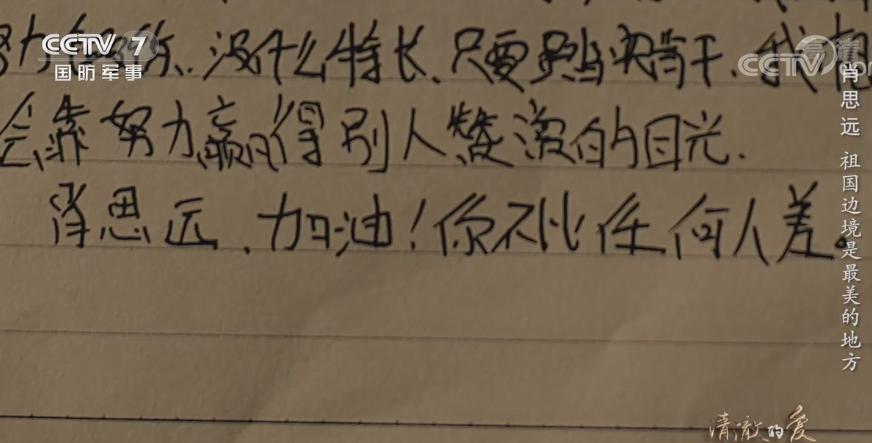 CCTV 7
国防军事
CCTV
没什么特长、只要踏实肯干、我相
会靠努力赢得别人赞叹的目光.
肖思远、加油！你不比任何人差。
肖思远 祖国边境是最美的地方
清澈的爱